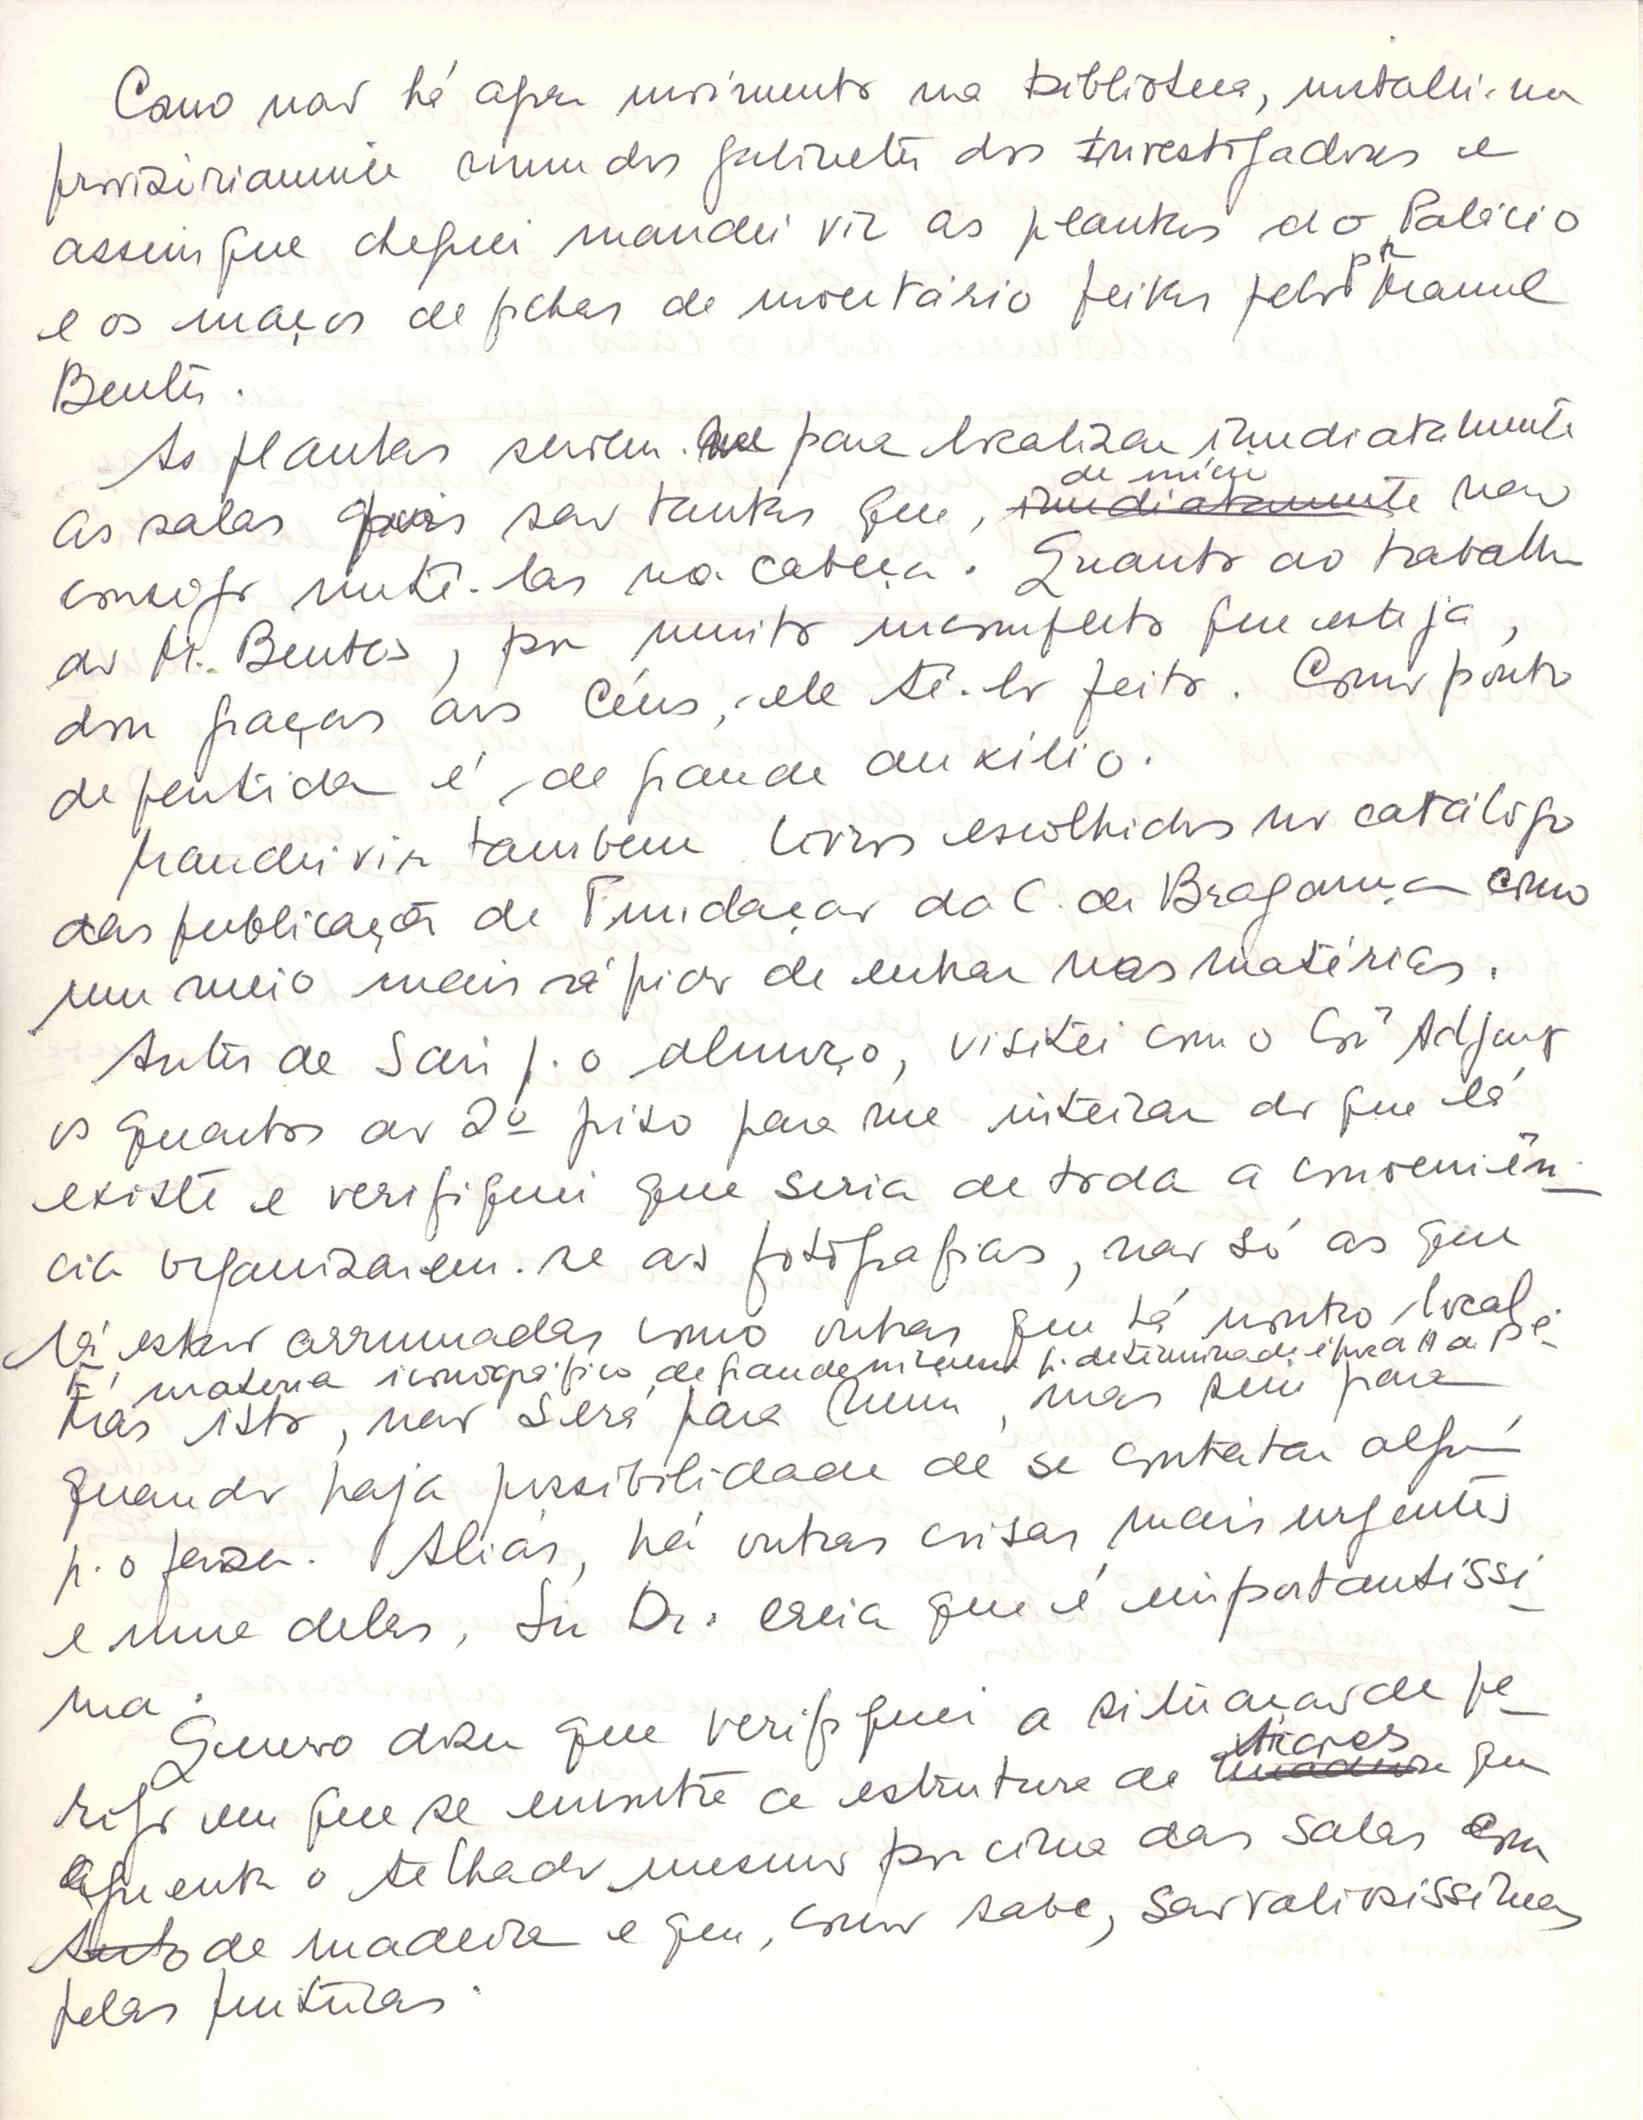 Como não há agora movimento na biblioteca, instalei-me
provisóriamente num dos gabinetes dos Investigadores e
assim que cheguei mandei vir as plantas do Palácio
e os maços de fichas de inventário feitas pelo Manuel
Bentes.
As plantas servem-me para localizar imediatamente
as salas pois são tantas que, de início imediatamente não
consigo metê-las na cabeça. Quanto ao trabalho
do M. Bentes, por muito incompleto que esteja,
dou graças aos Céus, ele tê-lo feito. Como ponto
de partida é de grande auxílio.
Mandei vir também livros escolhidos no catálogo
das publicações de Fundação da C. de Bragança como
um meio mais rápido de entrar nas matérias.
Antes de sair p. o almoço, visitei com o Adjunto
os quartos do 2º piso para me inteirar do que lá
existe e verifiquei que seria de toda a conveniên-
cia organizarem-se as fotografias, não só as que
lá estão arrumadas como outras que há noutro local.
É matéria iconográfica de grande interesse p. determinada época
Mas isto, não será para mim, mas sim para
quando haja possibilidade de se contratar alguém
p. o fazer. Aliás, há outras coisas mais urgentes
e uma delas, Sr. Dr. creia que é importantíssi-
ma.
Quero dizer que verifiquei a situação de pe-
rigo em que se encontra a estrutura de madeira que
aguenta o telhado mesmo por cima das salas com
tecto de madeira e que, como sabe, são valiosíssimas
pelas pinturas.